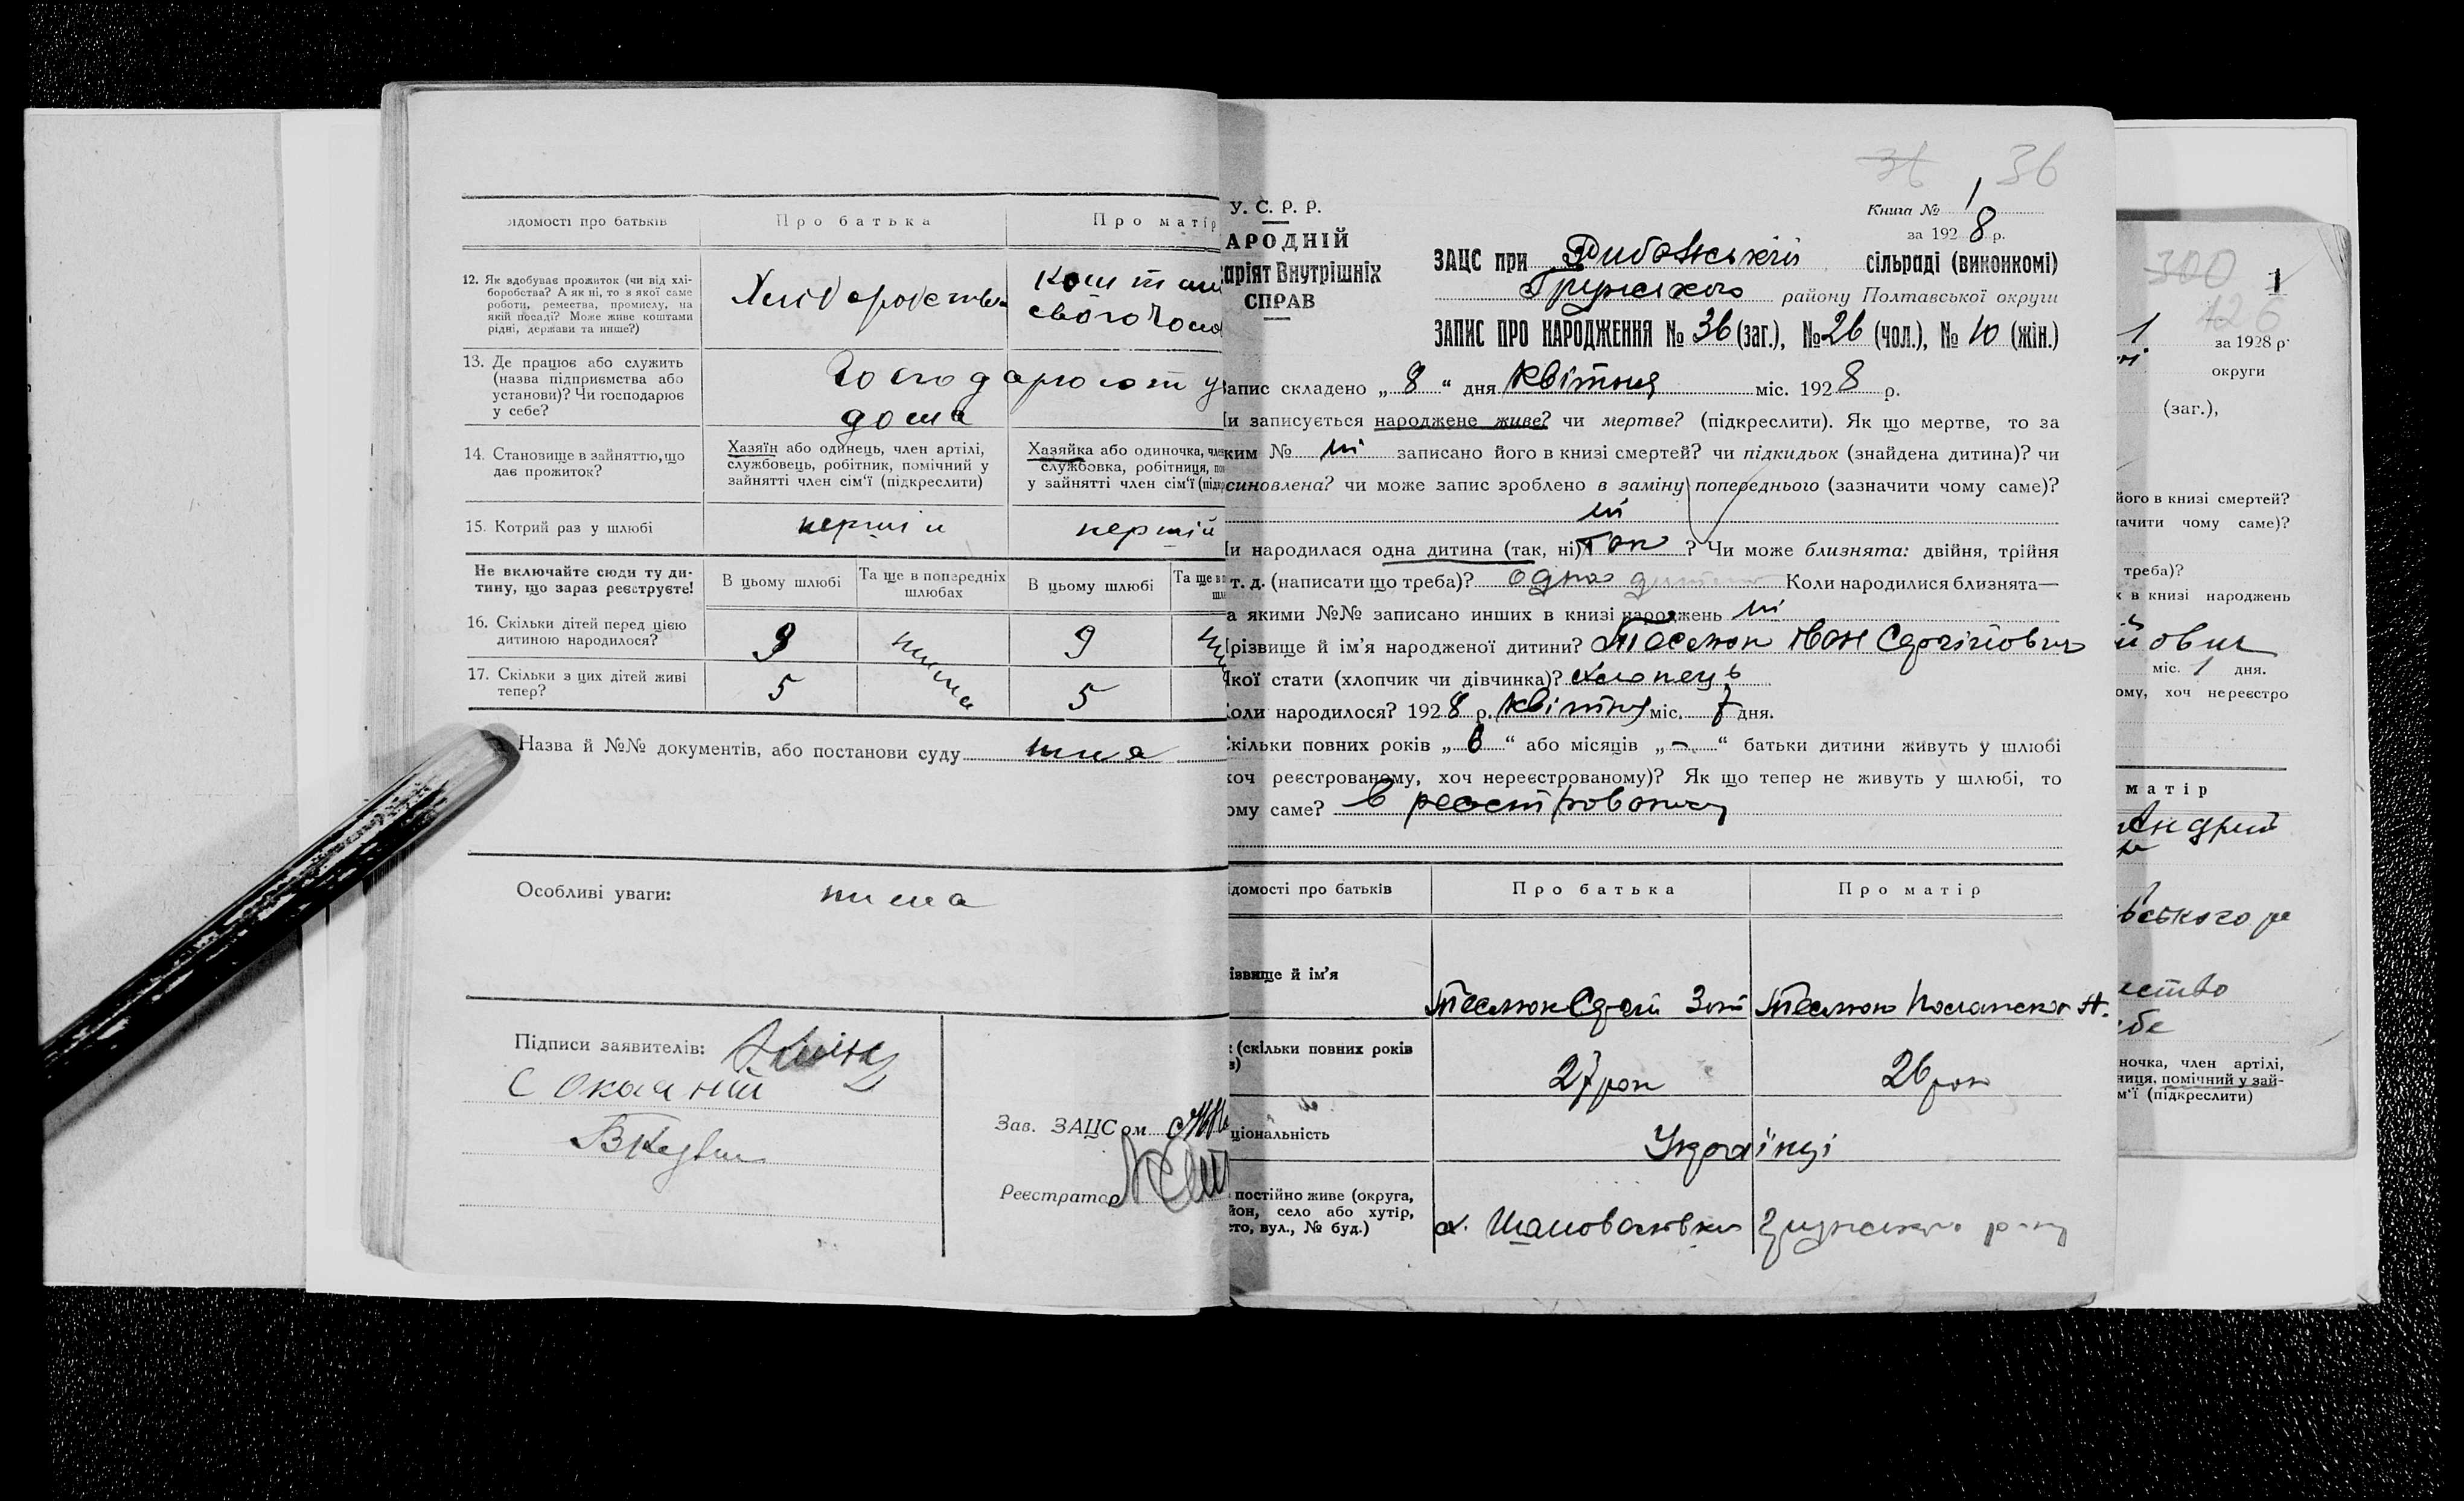 ідомості про батьків
Про батька
Про матір
12. Як здобуває прожиток (чи від хлі-
боробства? А як ні, то з якої саме
роботи, ремества, промислу, на
якій посаді? Може живе коштами
рідні, держави та инше?)
Хліборобство
коштами
свого
13. Де працює або служить
(назва підприємства або
установи)? Чи господарює
у себе?
Господарюють у
дома
14. Становище в зайняттю, що
дає прожиток?
Хазяїн або одинець, член артілі,
службовець, робітник, помічний у
зайнятті член сім'ї (підкреслити)
Хазяйка або одиночка, член
службовка, робітниця,
у зайнятті член сім'ї
15. Котрий раз у шлюбі
перший
перший
Не включайте сюди ту ди-
тину, що зараз реєструєте!
В цьому шлюбі
Та ще в попередніх
шлюбах
В цьому шлюбі
Та ще в
16. Скільки дітей перед цією
дитиною народилося?
9
нима
9
17. Скільки з цих дітей живі
тепер?
5
5
Назва й №№ документів, або постанови суду нима
Особливі уваги: нима
Підписи заявителів:
Зав. ЗАЦСом
Реєстратор
36 36
У. С. Р. Р.
АРОДНІЙ
аріят Внутрішніх
СПРАВ
Книга № 1
за 1928 р.
ЗАЦС при сільраді (виконкомі)
Грунського району Полтавської округи
ЗАПИС ПРО НАРОДЖЕННЯ № 36 (заг.), № 26 (чол.), № 10 (жін.)
апис складено „8“ дня квітня міс. 1928 р.
и записується народжене живе? чи мертве? (підкреслити). Як що мертве, то за
ким № ні записано його в книзі смертей? чи підкидьок (знайдена дитина)? чи
синовлена? чи може запис зроблено в заміну попереднього (зазначити чому саме)?
ні
и народилася одна дитина (так, ні) так ? Чи може близнята: двійня, трійня
т. д. (написати що треба)? одна дитина Коли народилися близнята—
а якими №№ записано инших в книзі народжень ні
різвище й ім'я народженої дитини? Теслюк Іван
кої стати (хлопчик чи дівчинка)? хлопець
оли народилося? 1928 р. квітня міс. 7 дня.
кільки повних років „8“ або місяців „-“ батьки дитини живуть у шлюбі
хоч реєстрованому, хоч нереєстрованому)? Як що тепер не живуть у шлюбі, то
ому саме? в реєстрованому
ідомості про батьків
Про батька
Про матір
ізвище й ім'я
Теслюк
Теслюк
(скільки повних років
27 рок
26 рок
ціональність
Українці
постійно живе (округа,
йон, село або хутір,
сто, вул., № буд.)
х. Шаповалівка Грунського р-ну
300
1
126
1
за 1928 р.
округи
(заг.),
його в книзі смертей?
начити чому саме)?
треба)?
х в книзі народжень
йович
міс. 1 дня.
ому, хоч нереєстро
матір
ського р
ество
себе
ночка, член артілі,
ниця, помічний у зай-
м'ї (підкреслити)